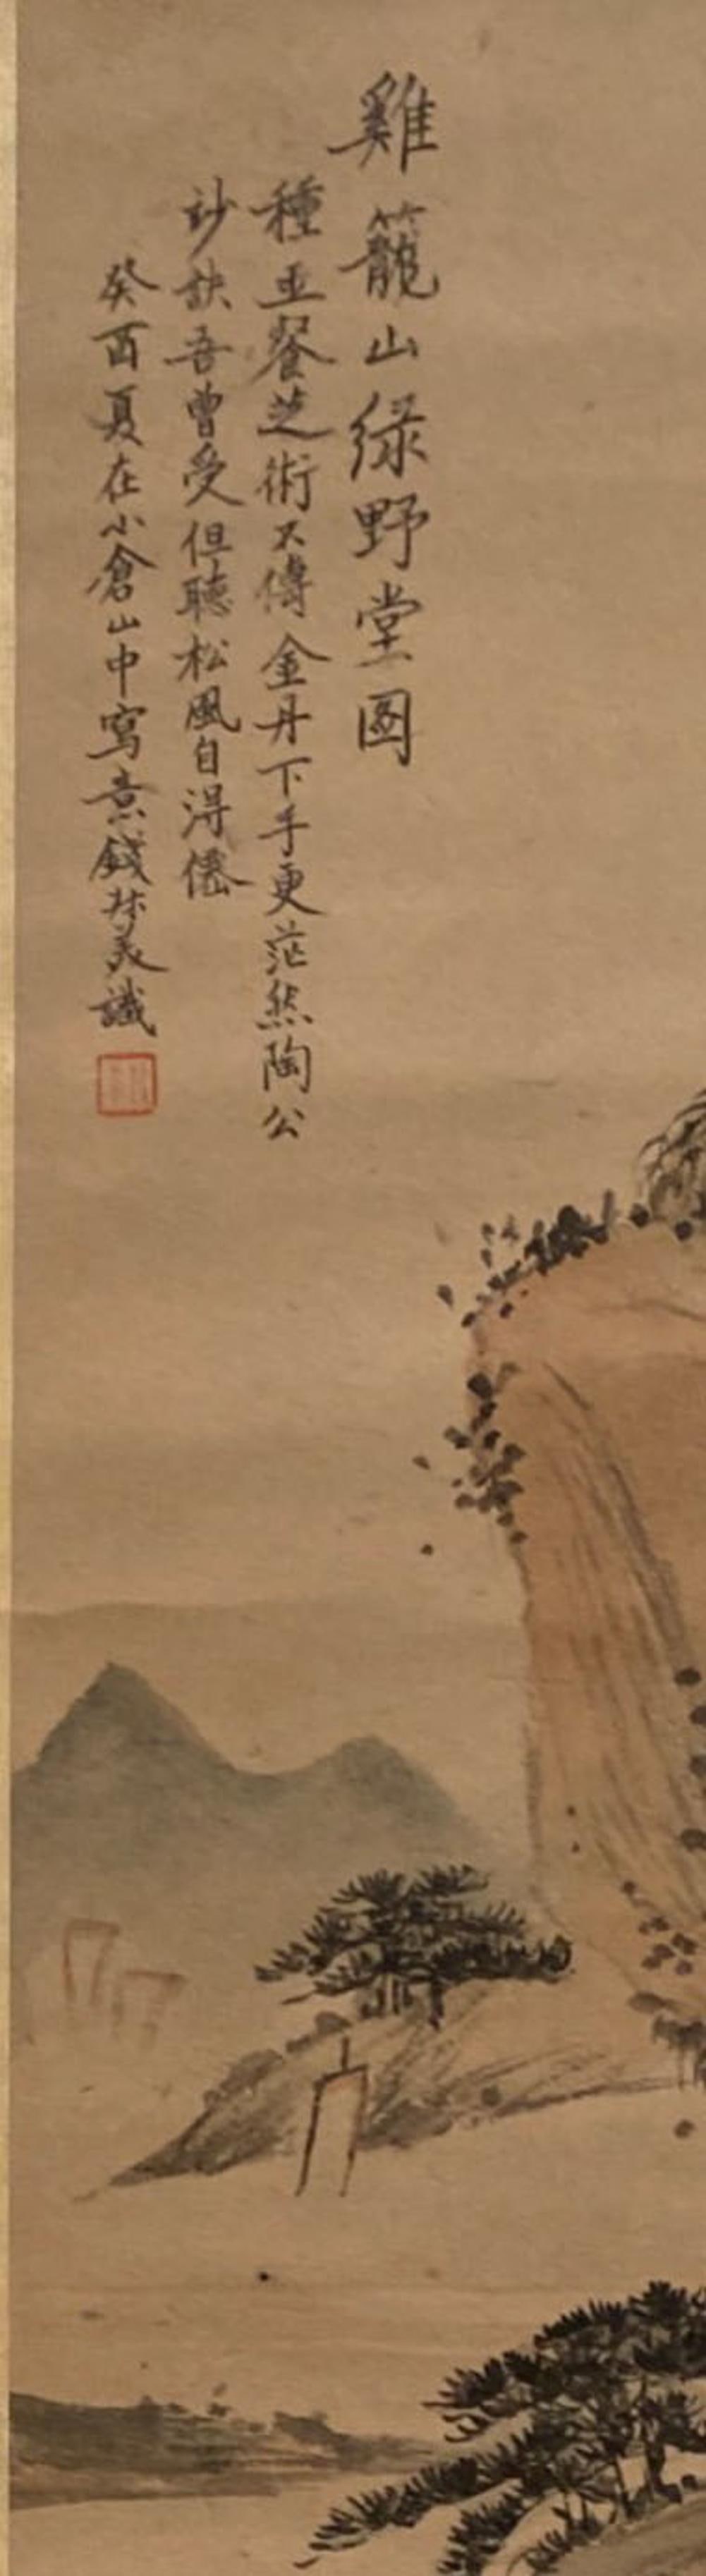 雞籠山緑野堂圖
種玉餐芝術不傳金丹下手更茫然陶公
訣吾曾受但聽松風自得僊
癸酉夏在小倉山中寫意錢林美識